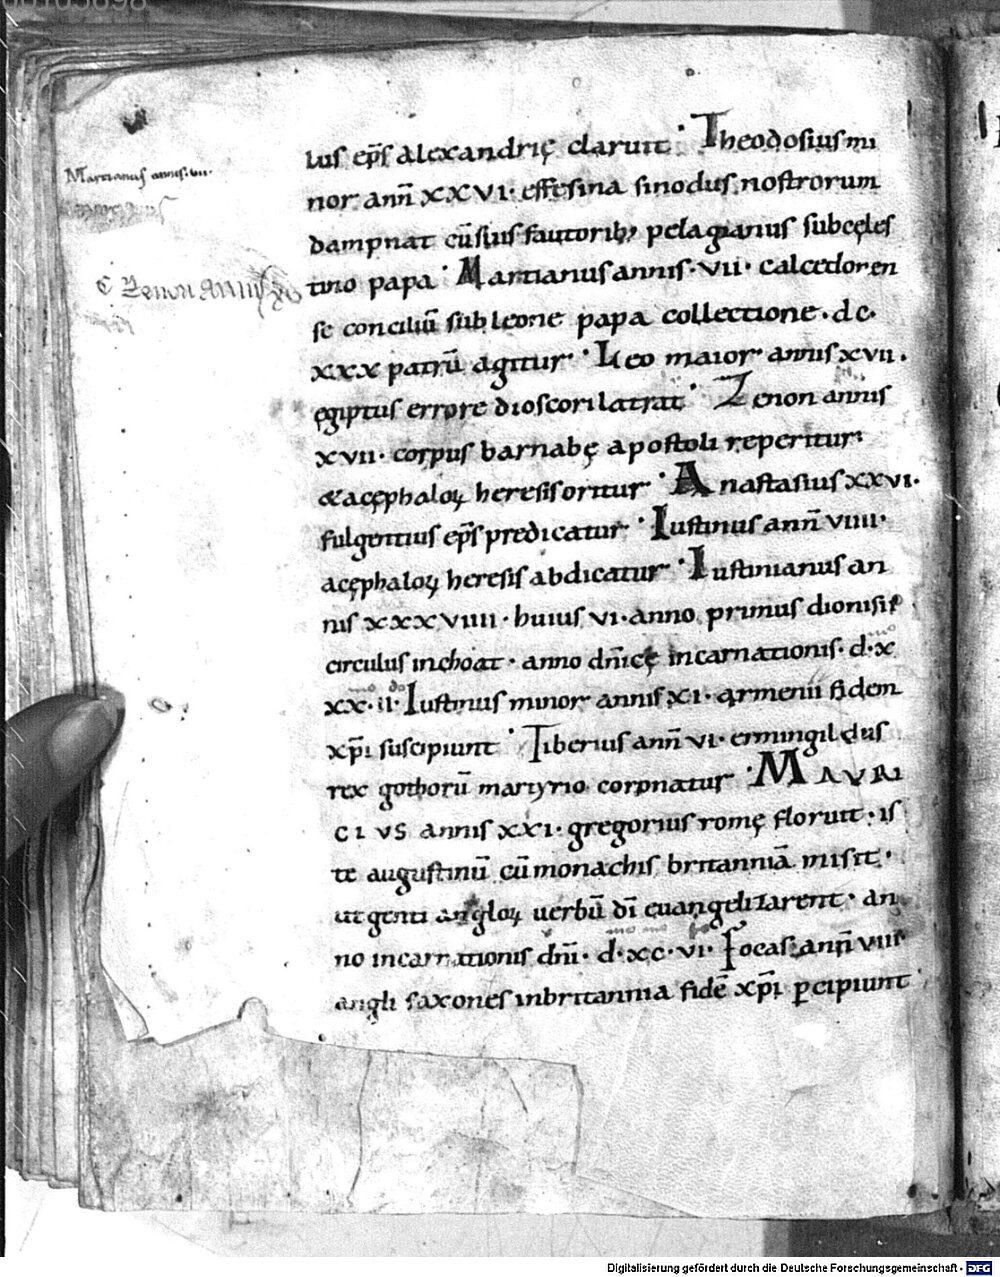 Martianus annis. vii.
Zenon annis
lus ep̄s alexandrię claruit · Theodosius mi
nor ann̄ XXVI · effesina sinodus nostrorum
dampnat cū suis fautorib; pelagianus sub cęles
tino papa · Martianus annis · vii · calcedoren
se conciliū sub leone papa collectione · dc ·
xxx patrū agitur · Leo maior annis xvii ·
ęgiptus errore dioscori latrat · Zenon annis
xvii · corpus barnabę apostoli reperitur ·
& acęphaloꝝ heresis oritur · Anastasius XXVI ·
fulgentius ep̄s predicatur · Iustinus ann̄ viiii ·
acęphaloꝝ heresis abdicatur · Iustinianus an
nis xxxviiii · huius vi · anno primus dionisii
circulus inchoat · anno dn̄icę incarnationis · d · x
xx · ii · Iustinus minor annis xi · armenii fidem
xp̄i suscipiunt · Tiberius ann̄ vi · ermingildus
rex gothorū martyrio coronatur · MAVRI
CIVS annis XXI · gregorius romę floruit · is
te augustinū cū monachis britanniā misit ·
ut genti angloꝝ uerbū dī euangelizarent · an
no incarnationis dn̄i · d · xc · vi · Focas ann̄ viii
angli saxones in britannia fidē xp̄i ꝑcipiunt
Digitalisierung gefördert durch die Deutsche Forschungsgemeinschaft - DFG